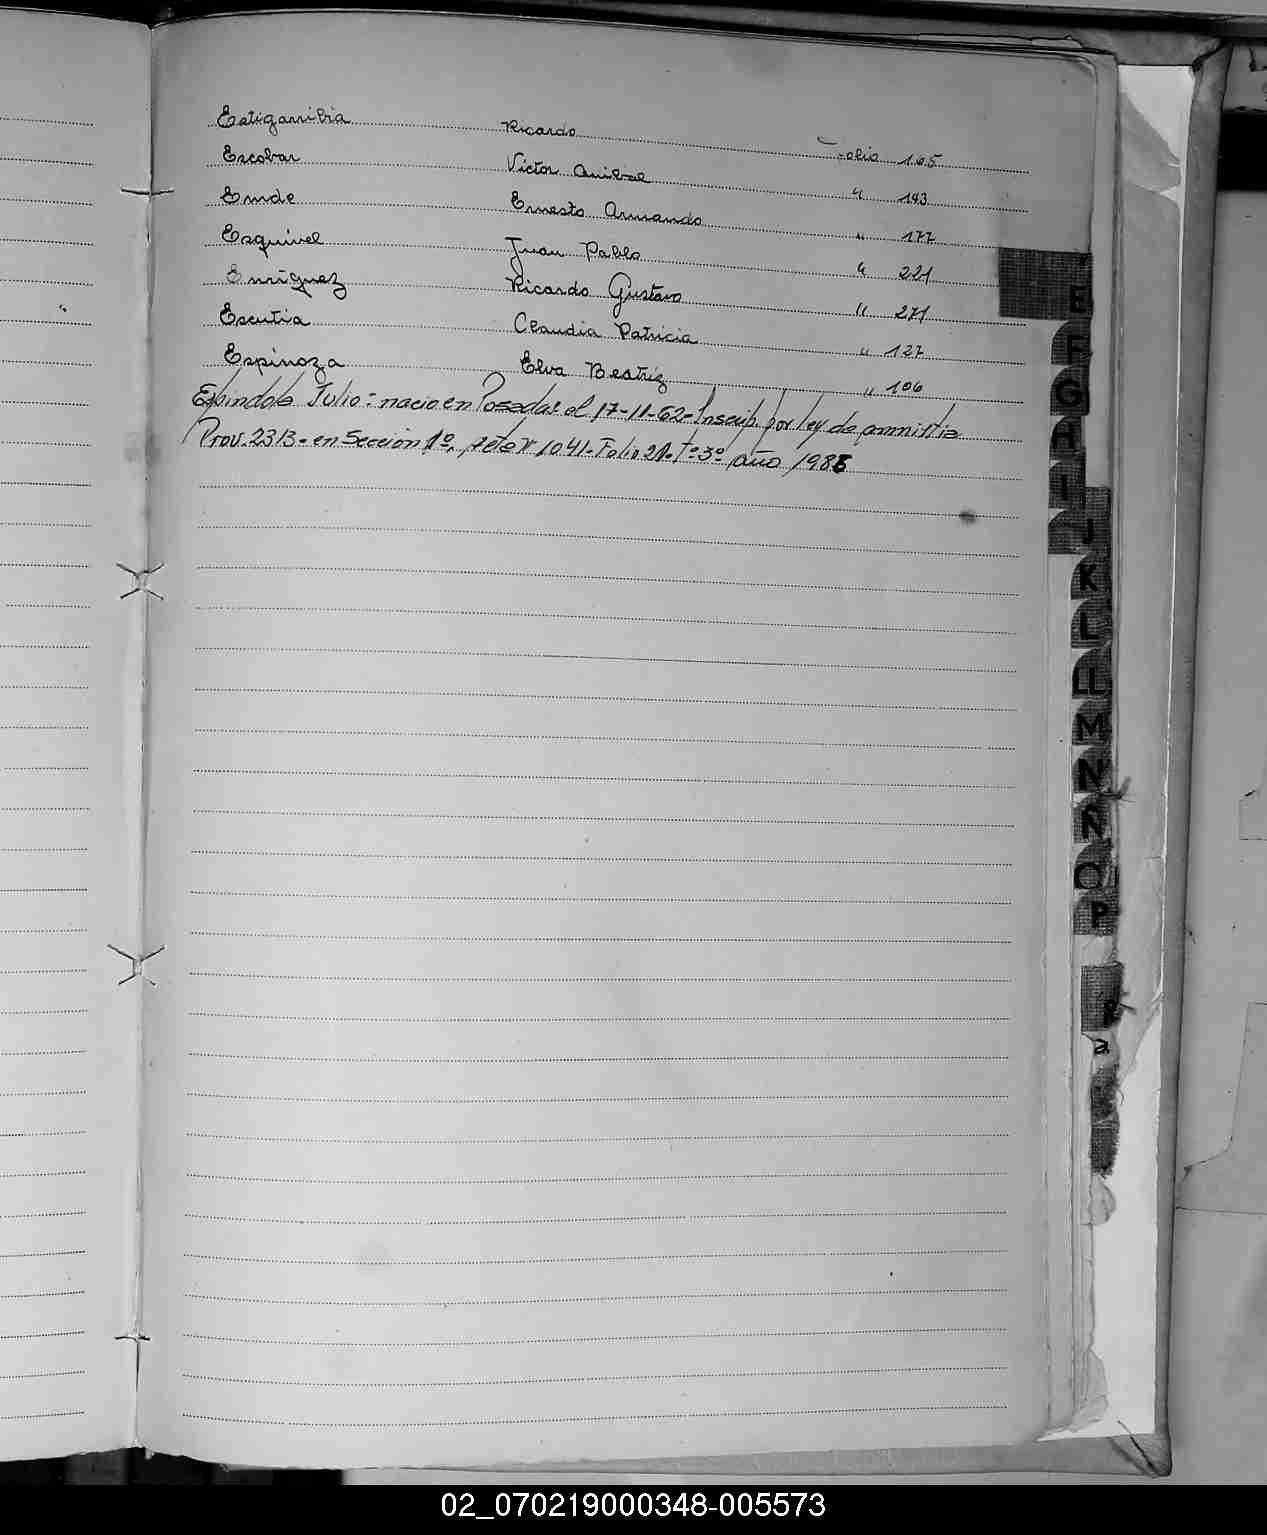 Estigarribia Ricardo Folio 165
Escobar Victor Anibal " 143
Emde Ernesto Armando " 177
Esquivel Juan Pablo " 221
Enriguez Ricardo Gustavo " 271
Escutia Claudia Patricia " 127
Espinoza Elva Beatriz " 106
Espindola Julio: nacio en Posadas el 17-11-62- Inscrip. por ley de amnistia
Prov. 2313- en Sección 1º, acta Nº 1041- Folio 21- Tº 3º año 1985
E
F
G
H
I
J
K
L
LL
M
N
Ñ
O
P
R
02_070219000348-005573